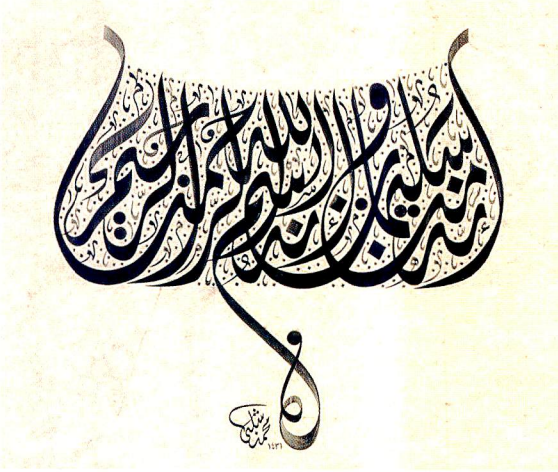 إنه من سليمان وإنه بسم الله الرحمن الرحيم
محمد شلبي
١٤٣١